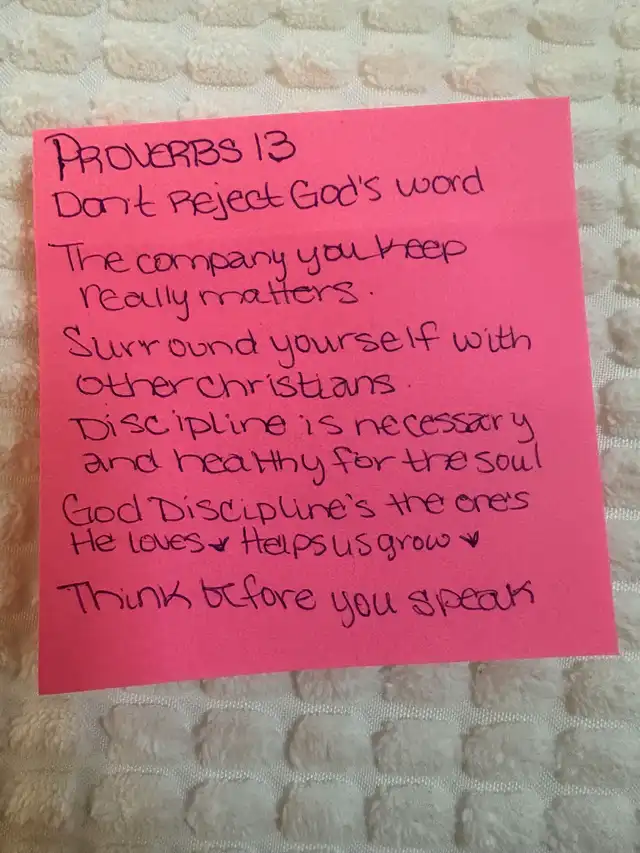 PROVERBS 13
Dont Reject God's word
The company you keep
really matters.
Surround yourself with
other christians.
Discipline is necessary
and healthy for the soul
God Discipline's the one's
He loves Helps us grow
Think before you speak